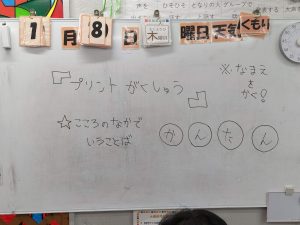 声を ひそひそ となりの人 グループで
1月8日 木曜日 天気 くもり
「プリントがくしゅう」
※なまえ
を
かく!
☆こころのなかで
いうことば
かんたん